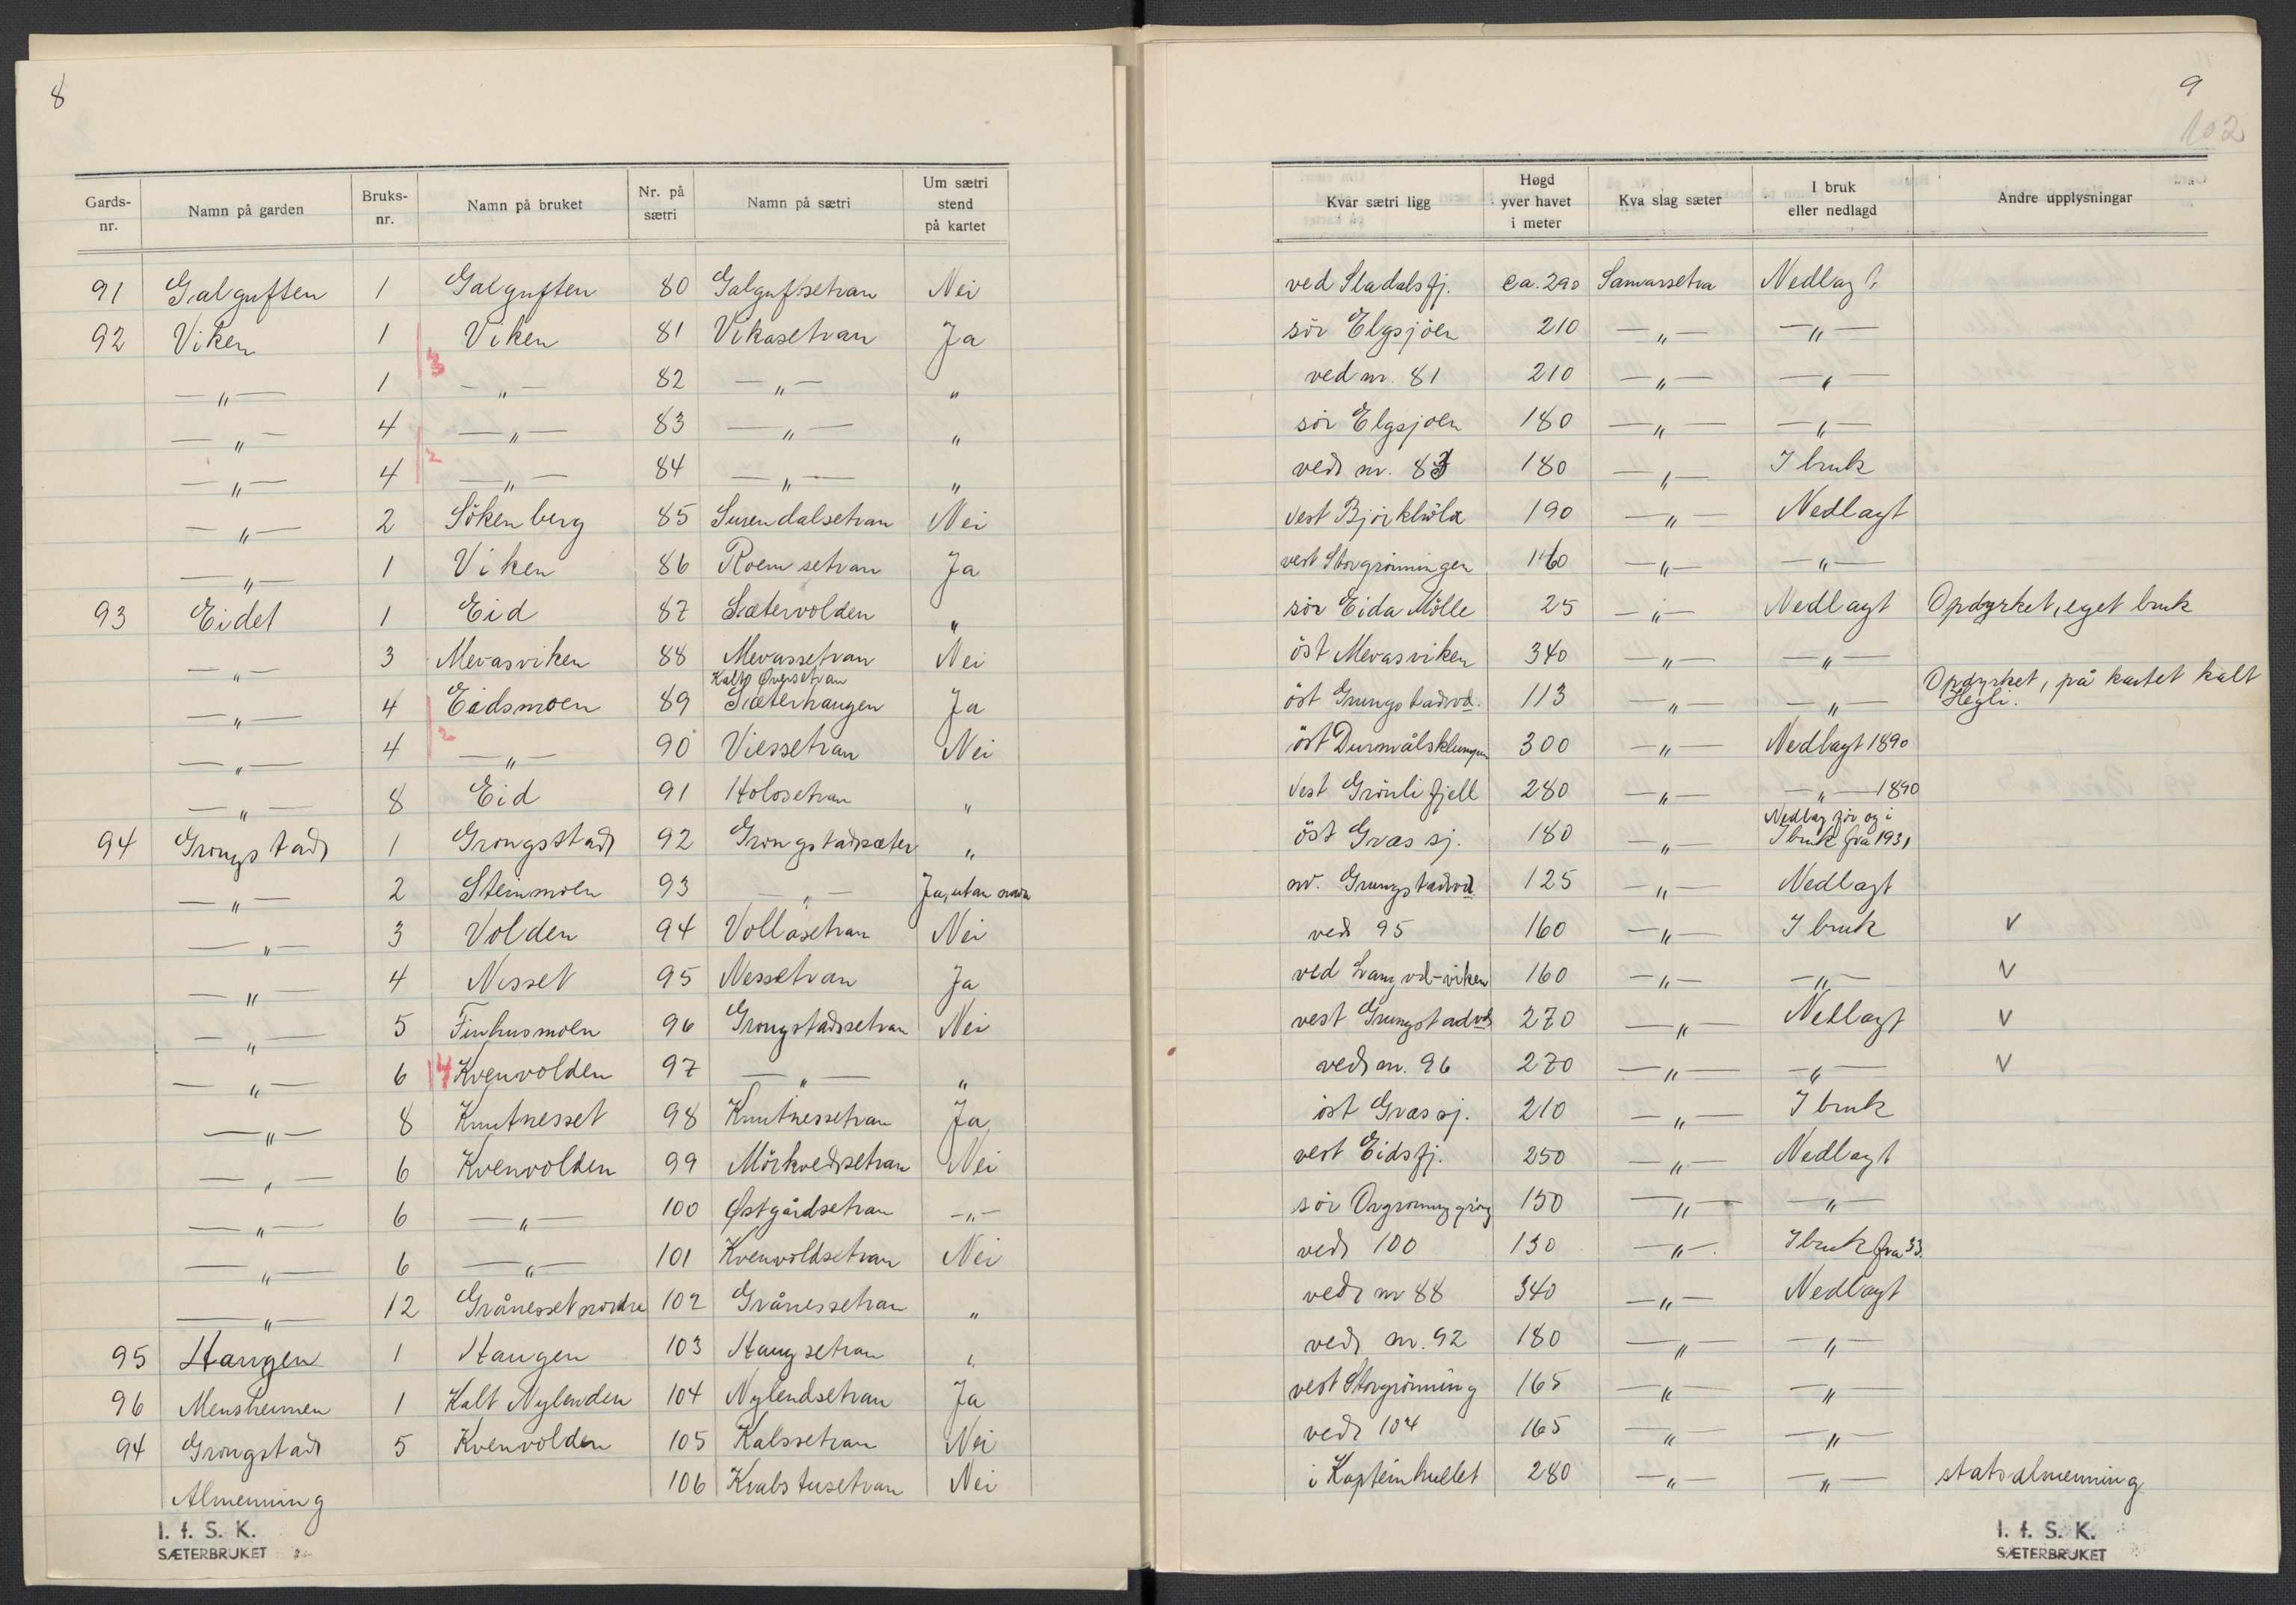 8
Gards-nr. Namn på garden Bruks-nr. Namn på bruket Nr. på sætri Namn på sætri Um sætri stend på kartet
91 Galguften 1 Galguften 80 Galgufsetran Nei
92 Viken 1 Viken 81 Vikasetran Ja
—„— 1 3 —„— 82 —„— „
—„— 4 —„— 83 —„— „
—„— 4 2 —„— 84 —„— „
—„— 2 Sökenberg 85 Surendalsetran Nei
—„— 1 Viken 86 Roemsetran Ja
93 Eidet 1 Eid 87 Sætervolden „
—„— 3 Mevasviken 88 Mevassetran Nei
Kalt Øversetran
—„— 4 Eidsmoen 89 Sæterhaugen Ja
—„— 4 2 —„— 90 Viessetran Nei
—„— 8 Eid 91 Holosetran „
94 Grongstad 1 Grongsstad 92 Grongstadsæter „
—„— 2 Steinmoen 93 —„— Ja, utan namn
—„— 3 Volden 94 Vollasetran Nei
—„— 4 Nesset 95 Nessetran Ja
—„— 5 Finhusmoen 96 Grongstadsetran Nei
—„— 6 4 Kvenvolden 97 —„— „
—„— 8 Knutnesset 98 Knutnessetran Ja
—„— 6 Kvenvolden 99 Mörkvedsetran Nei
—„— 6 —„— 100 Østgårdsetran —„—
—„— 6 —„— 101 Kvenvoldsetran Nei
—„— 12 Grånesset nordre 102 Grånessetran „
95 Haugen 1 Haugen 103 Haugsetran „
96 Mensheimen 1 Kalt Nylenden 104 Nylendsetran Ja
94 Grongstad 5 Kvenvolden 105 Kalssetran Nei
Almenning 106 Kvabstusetran Nei
I. f. S. K.
SÆTERBRUKET
9
102
Kvar sætri ligg Høgd yver havet i meter Kva slag sæter I bruk eller nedlagd Andre upplysningar
ved Stadalsfj. ca. 290 Samarssetra Nedlagt
sör Elgsjöen 210 —„— —„—
ved nr. 81 210 —„— —„—
sör Elgsjoen 180 —„— —„—
ved nr. 83 180 —„— I bruk
vest Björkhöla 190 —„— Nedlagt
vest Storgrönningen 160 —„— —„—
sör Eida Mölle 25 —„— Nedlagt Opdyrket, eget bruk
öst Mevasviken 340 —„— —„—
öst Grungstadvd. 113 —„— —„— Opdyrket, på kartet kalt Hegli.
öst Durmålsklumpen 300 —„— Nedlagt 1890
vest Grönlifjell 280 —„— —„— 1890
öst Græs sj. 180 —„— Nedlag för og i I bruk fra 1931
nv. Grungstadvd 125 —„— Nedlagt
ved 95 160 —„— I bruk V
ved Langvd-viken 160 —„— —„— V
vest Grungstadvd 270 —„— Nedlagt V
ved nr. 96 270 —„— —„— V
öst Græs sj. 210 —„— I bruk
vest Eidsfj. 250 —„— Nedlagt
sör 150 —„— —„—
ved 100 130 —„— I bruk fra 33.
ved nr 88 340 —„— Nedlagt
ved nr. 92 180 —„— —„—
vest Storgrönning 165 —„— —„—
ved 104 165 —„— —„—
i Kapteinhullet 280 —„— —„— statsalmenning
I. f. S. K.
SÆTERBRUKET